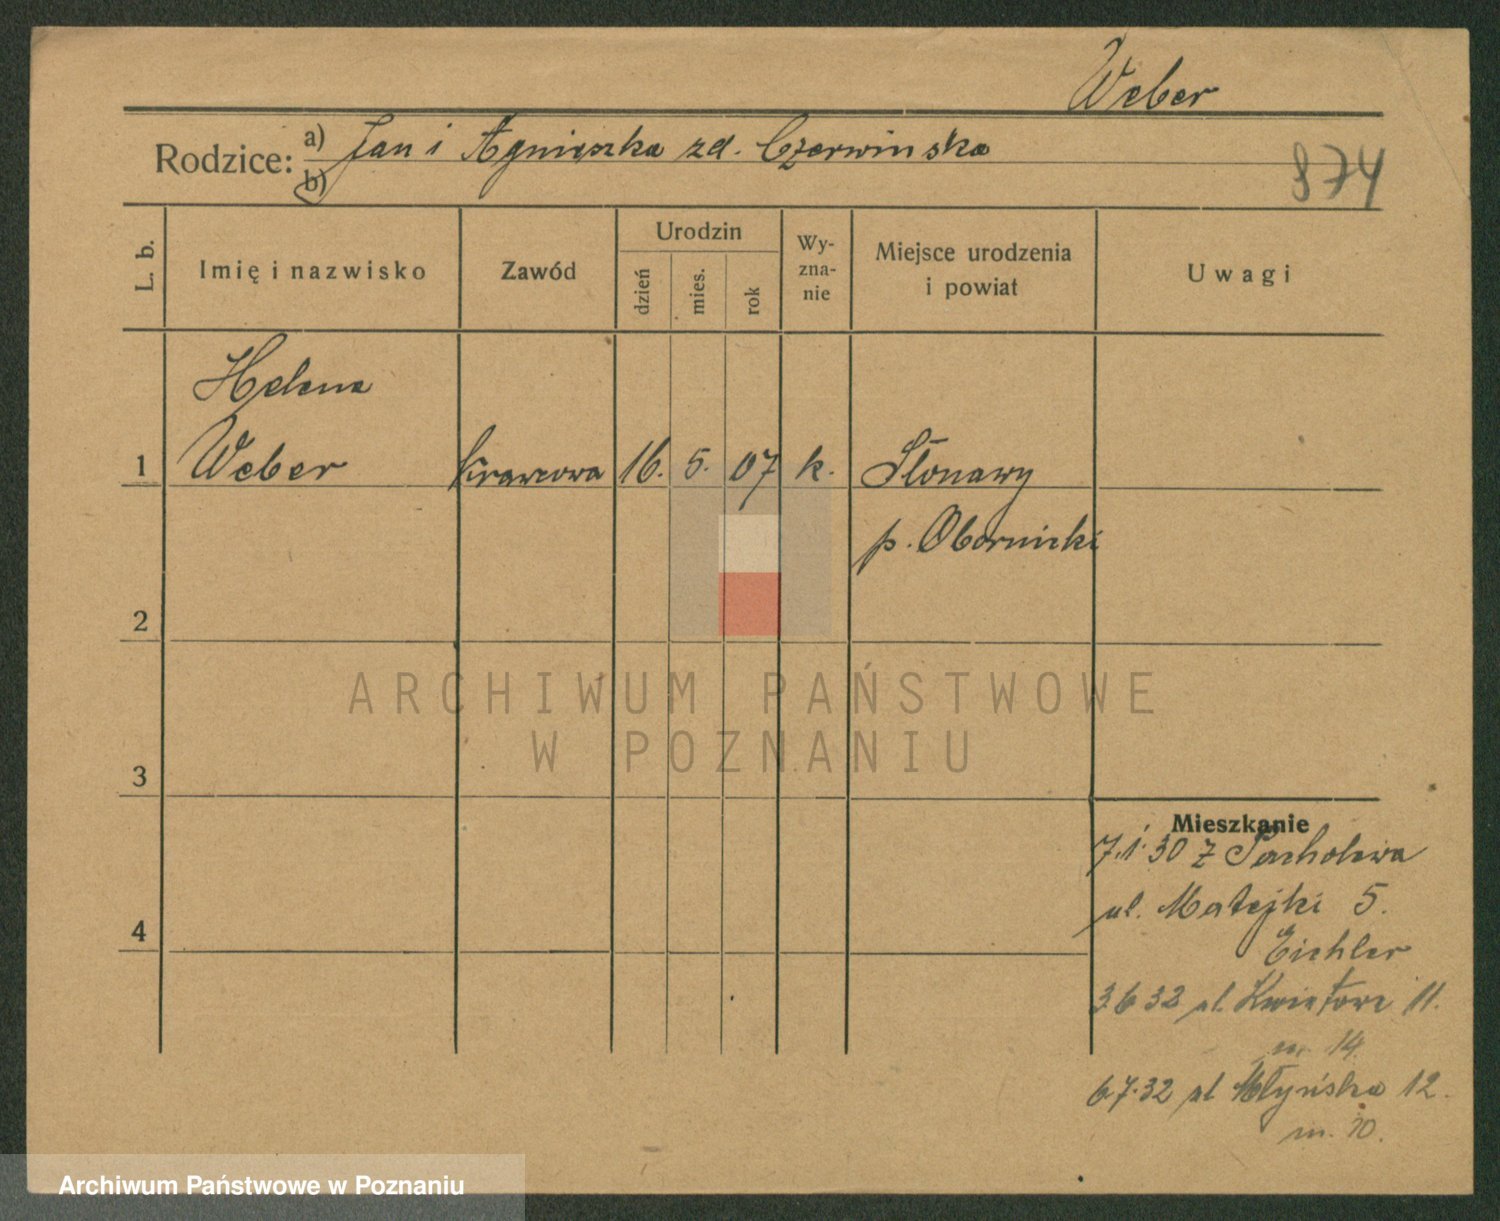 Weber
Rodzice: a) Jan i Agnieszka zd. Czerwinska
b)
874
L. b.
Imię i nazwisko
Zawód
Urodzin
dzień
mies.
rok
Wy-
zna-
nie
Miejsce urodzenia
i powiat
Uwagi
Helena
1 Weber Krawcowa 16. 5. 07 k. Słonawy
p. Obornicki
2
ARCHIWUM PAŃSTWOWE
W POZNANIU
3
Mieszkanie
7.1.30 z Pacholewa
ul. Matejki 5.
4
Eichler
3.6.32 ul. Kwiatowa 11.
m. 14.
6.7.32 ul Młyńska 12.
m. 10.
Archiwum Państwowe w Poznaniu